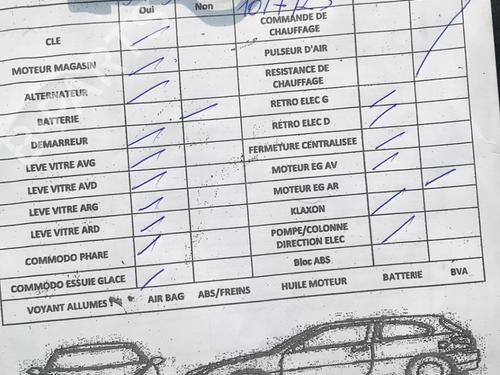 Oui Non
COMMANDE DE CHAUFFAGE
CLE
PULSEUR D'AIR
MOTEUR MAGASIN
RESISTANCE DE CHAUFFAGE
ALTERNATEUR
RETRO ELEC G
BATTERIE
RÉTRO ELEC D
DEMARREUR
FERMETURE CENTRALISEE
LEVE VITRE AVG
MOTEUR EG AV
LEVE VITRE AVD
MOTEUR EG AR
LEVE VITRE ARG
KLAXON
LEVE VITRE ARD
POMPE/COLONNE DIRECTION ELEC
COMMODO PHARE
Bloc ABS
COMMODO ESSUIE GLACE
VOYANT ALLUMES AIR BAG ABS/FREINS HUILE MOTEUR BATTERIE BVA